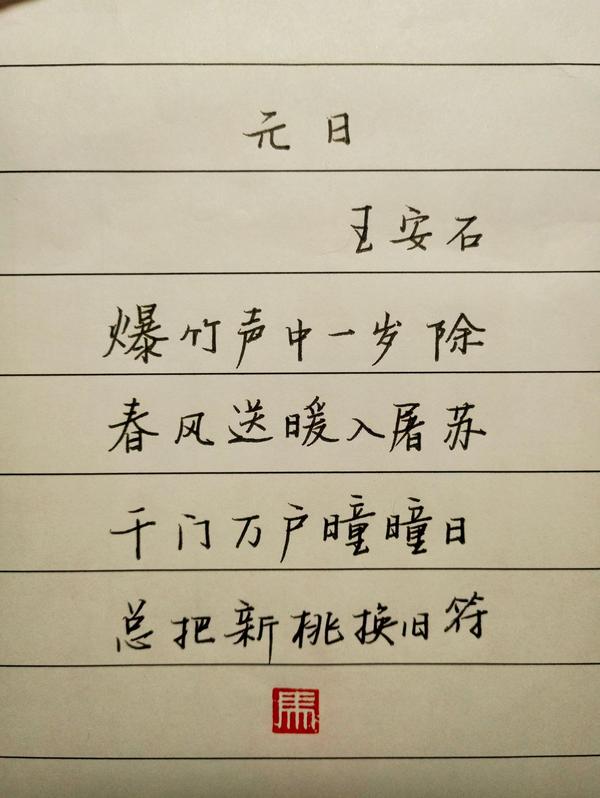 元日
王安石
爆竹声中一岁除
春风送暖入屠苏
千门万户曈曈日
总把新桃换旧符